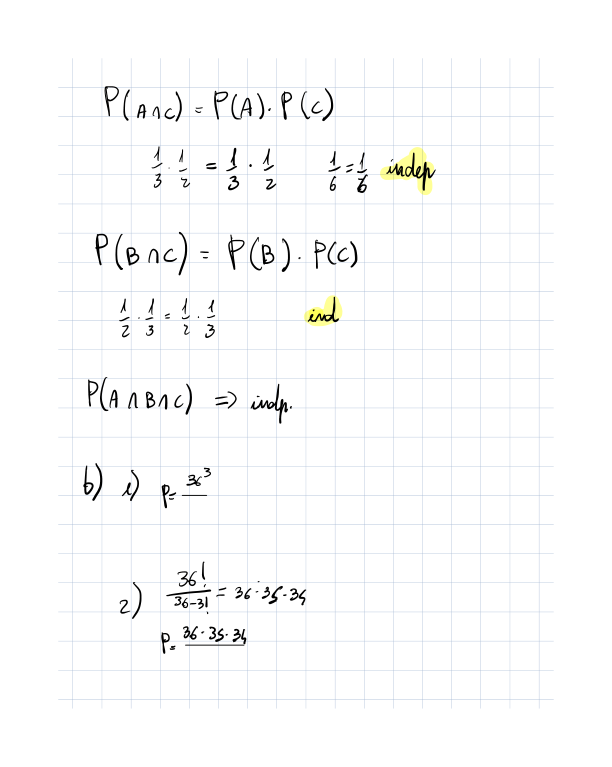 P(A∩C) = P(A)·P(C)
1/3 · 1/2 = 1/3 · 1/2 1/6 = 1/6 indep
P(B∩C) = P(B)·P(C)
1/2 · 1/3 = 1/2 · 1/3 ind
P(A∩B∩C) => indp.
b) i) P= 36³/
2) 36!/36-3! = 36·35·34
P= 36·35·34/